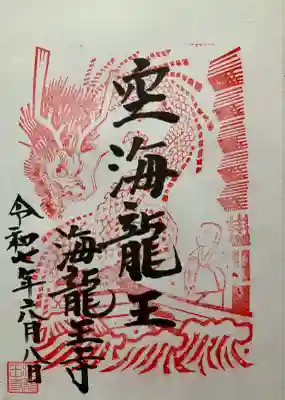 空海龍王
海龍王寺
令和七年六月八日